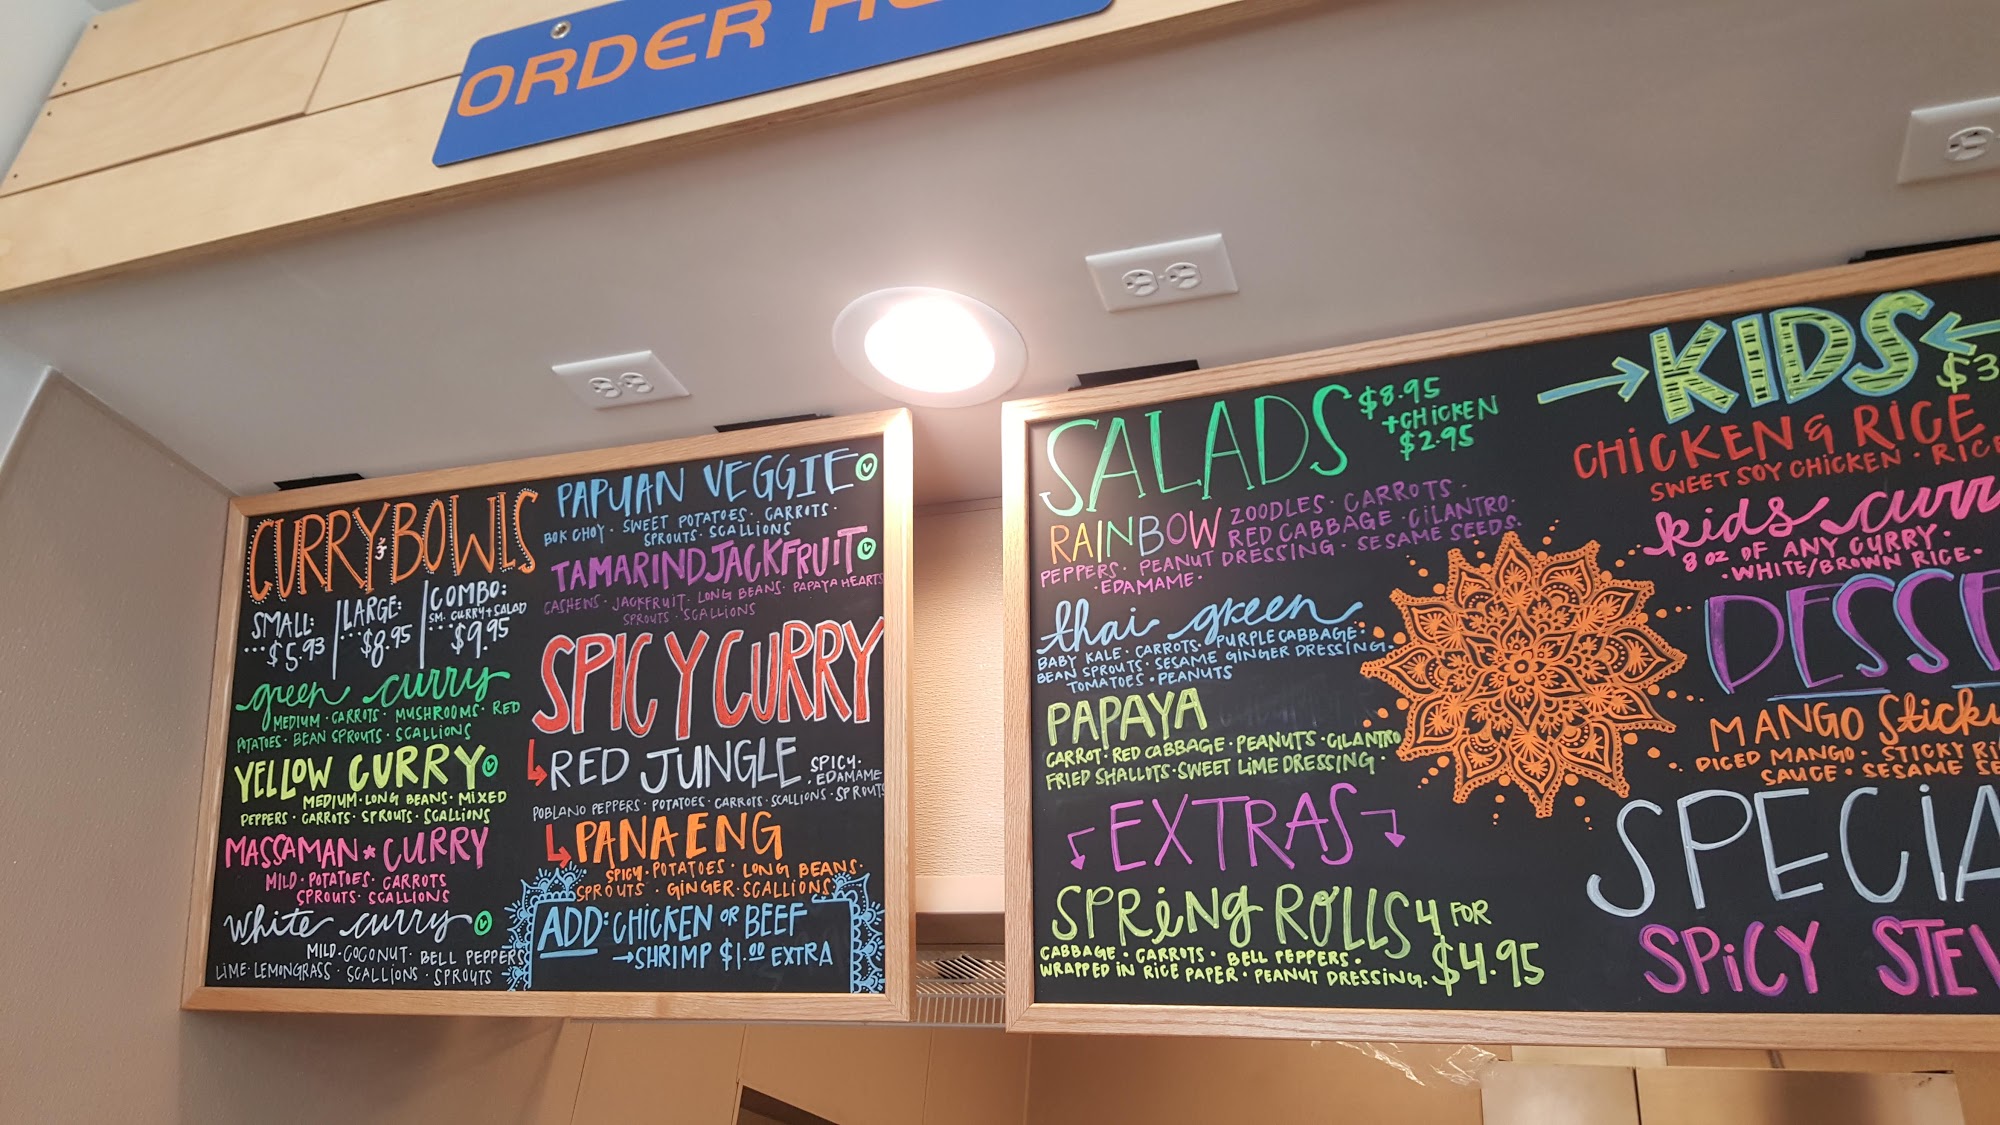 ORDER
CURRY BOWLS
SMALL:
...$5.93
LARGE:
...$8.95
COMBO:
SM. CURRY + SALAD
...$9.95
green curry
MEDIUM · CARROTS · MUSHROOMS · RED
POTATOES · BEAN SPROUTS · SCALLIONS
YELLOW CURRY V
MEDIUM · LONG BEANS · MIXED
PEPPERS · CARROTS · SPROUTS · SCALLIONS
MASSAMAN * CURRY
MILD · POTATOES · CARROTS
SPROUTS · SCALLIONS
White curry V
MILD · COCONUT · BELL PEPPERS
LIME · LEMONGRASS · SCALLIONS · SPROUTS
PAPUAN VEGGIE V
BOK CHOY · SWEET POTATOES · CARROTS ·
SPROUTS · SCALLIONS
TAMARIND JACKFRUIT V
CASHEWS · JACKFRUIT · LONG BEANS · PAPAYA HEARTS
SPROUTS · SCALLIONS
SPICY CURRY
RED JUNGLE SPICY ·
· EDAMAME
POBLANO PEPPERS · POTATOES · CARROTS · SCALLIONS · SPROUTS
PANAENG
SPICY · POTATOES · LONG BEANS ·
SPROUTS · GINGER · SCALLIONS
ADD: CHICKEN OR BEEF
→ SHRIMP $1.00 EXTRA
SALADS $8.95
+ CHICKEN
$2.95
RAINBOW ZOODLES · CARROTS ·
RED CABBAGE · CILANTRO ·
PEPPERS · PEANUT DRESSING · SESAME SEEDS ·
· EDAMAME ·
thai green
BABY KALE · CARROTS · PURPLE CABBAGE ·
BEAN SPROUTS · SESAME GINGER DRESSING ·
TOMATOES · PEANUTS
PAPAYA
CARROT · RED CABBAGE · PEANUTS · CILANTRO
FRIED SHALLOTS · SWEET LIME DRESSING ·
EXTRAS
SPRING ROLLS 4 FOR
$4.95
CABBAGE · CARROTS · BELL PEPPERS ·
WRAPPED IN RICE PAPER · PEANUT DRESSING.
→ KIDS ←
$3
CHICKEN & RICE
SWEET SOY CHICKEN · RICE
kids curry
8 OZ OF ANY CURRY ·
· WHITE/BROWN RICE ·
MANGO Sticky
DICED MANGO · STICKY
SAUCE · SESAME
SPICY